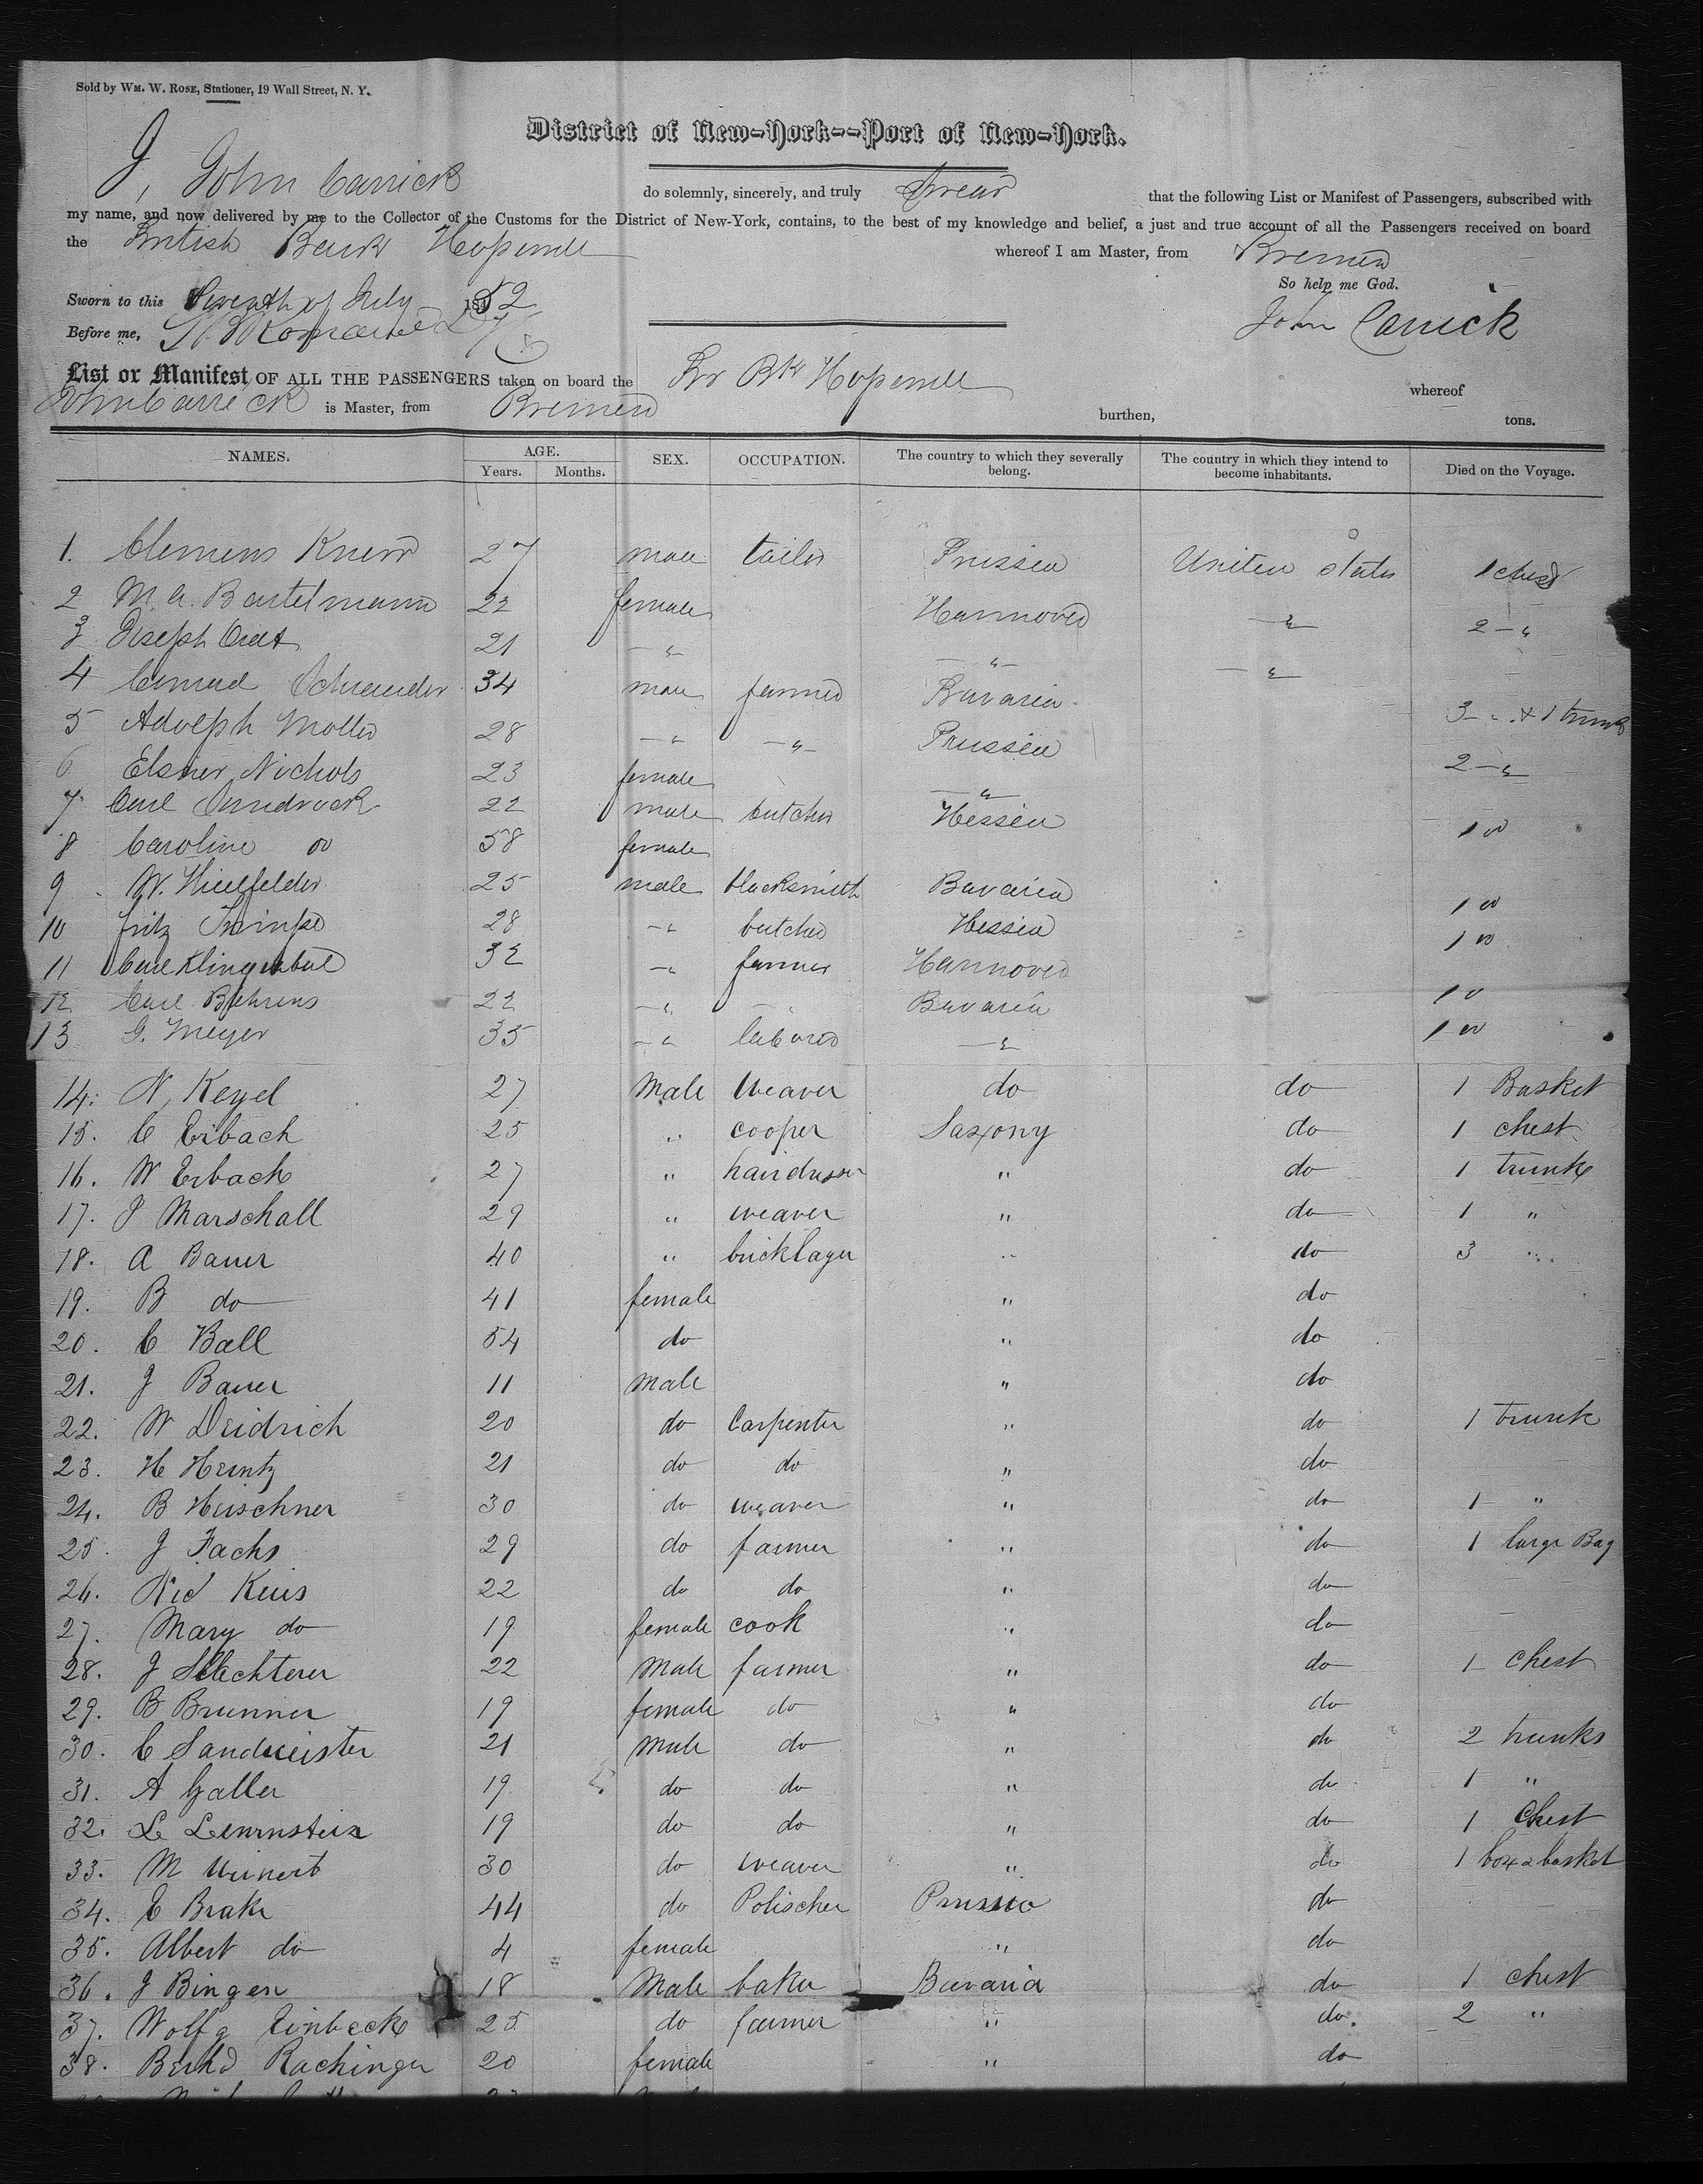 Sold by WM. W. ROSE, Stationer, 19 Wall Street, N. Y.
District of New-York--Port of New-York.
I, John Carrick do solemnly, sincerely, and truly swear that the following List or Manifest of Passengers, subscribed with
my name, and now delivered by me to the Collector of the Customs for the District of New-York, contains, to the best of my knowledge and belief, a just and true account of all the Passengers received on board
the British Bark Hopewell whereof I am Master, from Bremen
So help me God.
Sworn to this Seventh of July 1852
John Carrick
Before me,
List or Manifest OF ALL THE PASSENGERS taken on board the Br Bk Hopewell whereof
John Carrick is Master, from Bremen burthen, tons.
NAMES. AGE. Years. Months. SEX. OCCUPATION. The country to which they severally belong. The country in which they intend to become inhabitants. Died on the Voyage.
1. Clemens Knerr 27 male tailor Prussia United States 1 chest
2 M. A. Bartelmann 22 female Hannover -"- 2 -"
3 Joseph 21 -"- -"- -"-
4 Conrad Schraeuder 34 male farmer Bavaria 3 - " + 1 trunk
5 Adolph Moller 28 -"- -"- Prussia
6 Elsner Nichols 23 female -"- 2 -"-
7 Carl 22 male butcher Hessia
8 Caroline do 58 female 1 do
9 W. 25 male blacksmith Bavaria
10 Fritz 28 -" butcher Hessia 1 do
11 Carl 32 -" farmer Hannover 1 do
12 Carl Behrens 22 -" - " Bavaria
13 G. Meyer 35 -" laborer -" 1 do
14. N. Keyel 27 Male Weaver do do 1 Basket
15. C Erbach 25 " cooper Saxony do 1 chest
16. W Erbach 27 " hairdresser " do 1 trunk
17. J Marschall 29 " weaver " do 1 "
18. A Bauer 40 " bricklayer " do 3 "
19. B do 41 female " do
20. C Ball 54 do " do
21. J Bauer 11 Male " do
22. W Deidrich 20 do Carpenter " do 1 trunk
23. H Heintz 21 do do " do
24. B Hirschner 30 do weaver " do 1 "
25. J Fachs 29 do farmer " do 1 large Bag
26. Nid Keris 22 do do " do
27. Mary do 19 female cook " do
28. J Slechterer 22 Male farmer " do 1 chest
29. B Brunner 19 female do " do
30. C Sandmeister 21 Male do " do 2 trunks
31. A Galler 19 do do " do 1 "
32. L 19 do do " do 1 Chest
33. M Weinert 30 do weaver " do 1 box & basket
34. E Brake 44 do Polischer Prussia do
35. Albert do 4 female " do
36. J Bingen 18 Male baker Bavaria do 1 chest
37. Wolfg Einbeck 25 do farmer " do. 2 "
38. Berhd Rachinger 20 female " do